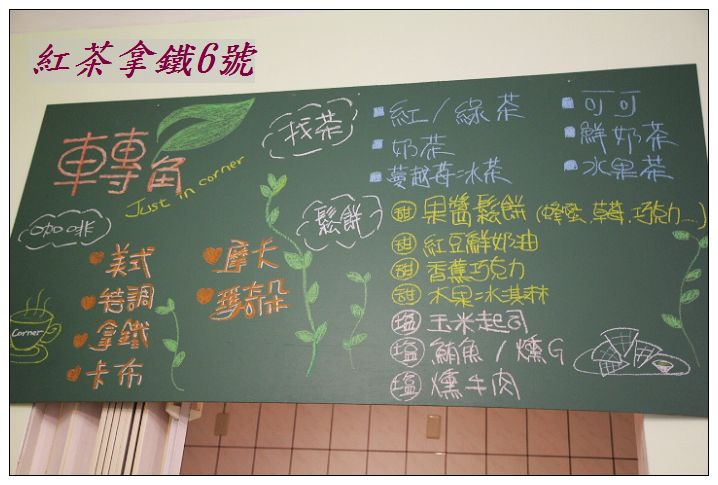 紅茶拿鐵6號
轉角
Just in corner
咖啡
美式
特調
拿鐵
卡布
摩卡
瑪奇朵
Corner
找茶
紅/綠茶
奶茶
蔓越莓冰茶
可可
鮮奶茶
水果茶
鬆餅
甜 果醬鬆餅 (蜂蜜、草莓、巧克力...)
甜 紅豆鮮奶油
甜 香蕉巧克力
甜 水果冰淇淋
塩 玉米起司
塩 鮪魚/燻G
塩 燻牛肉